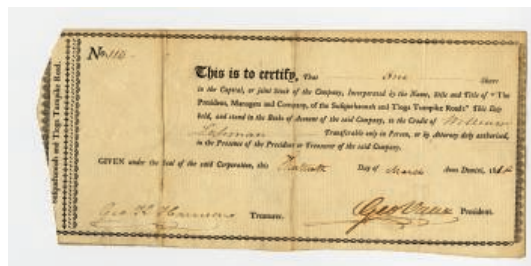 No. 110
This is to certify, That One Share
in the Capital, or joint Stock of the Company, Incorporated by the Name, Stile and Title of "The
President, Managers and Company, of the Susquehannah and Tioga Turnpike Road:" This Day
held, and stand in the Books of Account of the said Company, to the Credit of William
Lehman Transferable only in Person, or by Attorney duly authorised,
in the Presence of the President or Treasurer of the said Company.
GIVEN under the Seal of the said Corporation, this Day of March Anno Domini, 18
Geo Treasurer. Geo Vaux President.
Susquehannah and Tioga Turnpike Road.